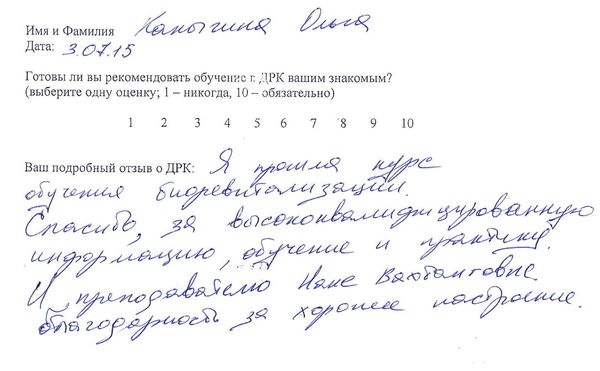 Имя и Фамилия Каныгина Ольга
Дата: 3.07.15
Готовы ли вы рекомендовать обучение г. ДРК вашим знакомым?
(выберите одну оценку; 1 – никогда, 10 – обязательно)
1 2 3 4 5 6 7 8 9 10
Ваш подробный отзыв о ДРК: Я прошла курс
обучения биоревитализации.
Спасибо, за высококвалифицированную
информацию, обучение и практику.
И преподавателю Нане Вахтанговне
благодарность за хорошее настроение.